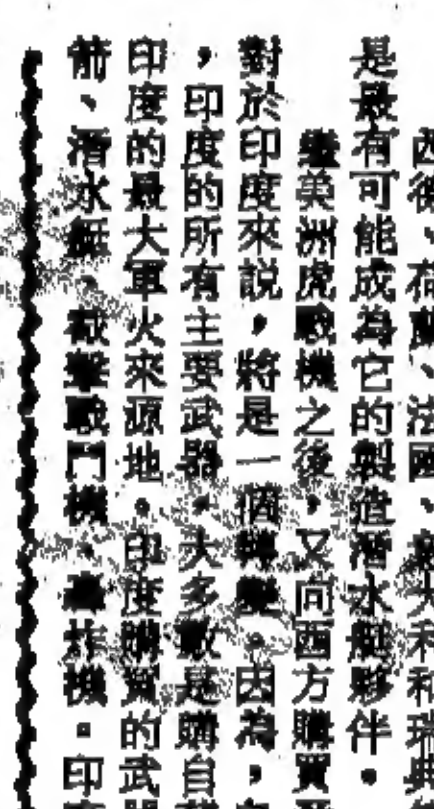 西德、荷蘭、法國、意大利和瑞典
是最有可能成為它的製造潛水艇夥伴。
繼美洲虎戰機之後，又向西方購買
對於印度來說，將是一個轉變。因為，
，印度的所有主要武器，大多數是購自
印度的最大軍火來源地。印度購買的武
箭、潛水艇、截擊戰鬥機、轟炸機。印